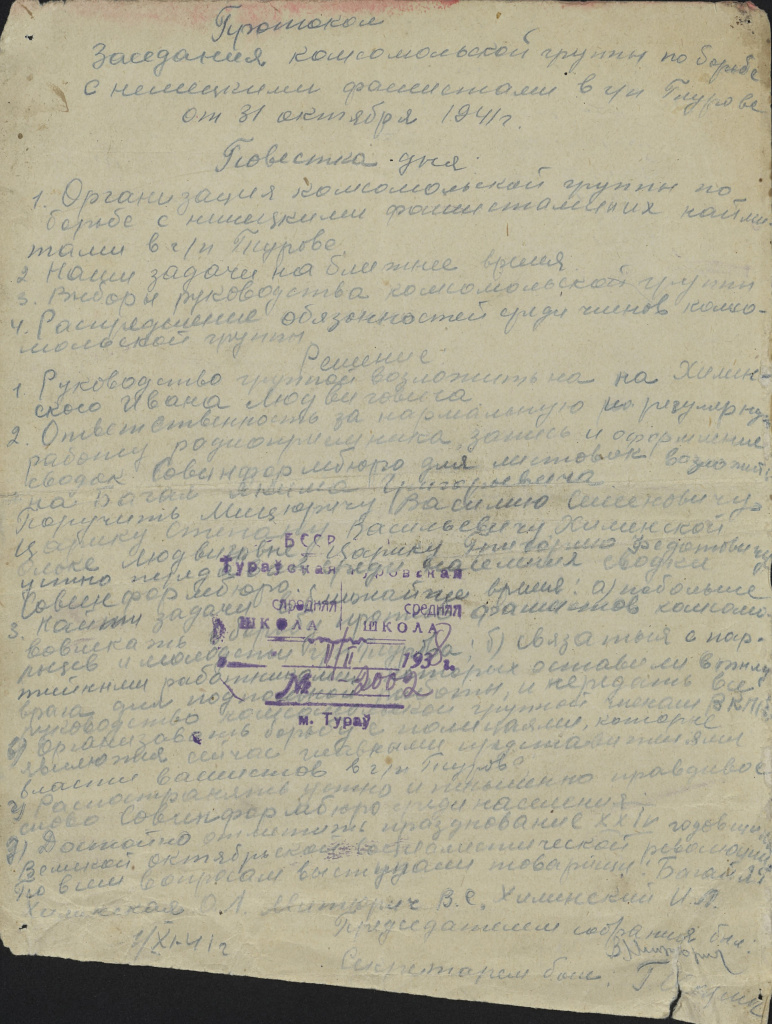 Протокол
Заседания комсомольской группы по борьбе
с немецкими фашистами в г/п Турове
от 31 октября 1941 г.
Повестка дня
1. Организация комсомольской группы по
борьбе с немецкими фашистами их найми-
тами в г/п Турове
2. Наши задачи на ближнее время
3. Выборы руководства комсомольской группы
4. Распределение обязонностей среди членов комсо-
мольской группы
Решение
1. Руководство группой возложить на на Хилин-
ского Ивана Людвиговича
2. Ответственность за нармальную и регулярную
работу радиоприемника, запись и оформление
сводок Совинформбюро для листовок возложить
на Багая Якима Григорьевича
Поручить Мицюричу Василию Семеновичу,
Царику Степану Васильевичу Хилинской
Ольке Людвиговне, Царику Федотовичу
устно сводки
Совинформбюро
3. Наши задачи время: а) побольше
фашистов комсомо-
рьцев и молодежи г/п Турова; б) связаться с пар-
тийными работниками которых оставили в тылу
врага для работы, и передать все
руководство группой членам ВКПб
в) Организовать борьбу с полицаями, которые
являются сейчас главными представителями
власти фашистов в г/п Туров
г) Распостранять устно и письменно правдивое
слово Совинформбюро среди населения
д) Достойно отметить празднование XXIV годовщины
Великой октябрьской социалистической революции
По всем вопросам выступали товарищи: Багай Я.Г
Хилинская О.Л. Мицюрич В.С. Хилинский И.Л.
Председателем собрания был:
1/XI-41 г
Секретарем был:
БССР
Тураўская Туровская
сярэдняя средняя
ШКОЛА ШКОЛА
II 193 г.
№ 2002
м. Тураў